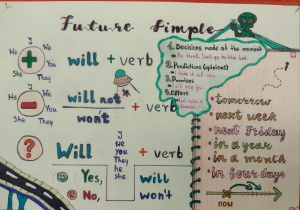 Future Simple
I
He You
It We
She They
will + verb
1. Decisions made at the moment
I'm tired. I will go to bed.
2. Predictions (opinions)
3. Promises
I will help you
4. Offers
I
He You
It We
She They
will not + verb
won't
?
Will
I
you
We
They
he
she
it
+ verb
Yes,
No,
will
won't
tomorrow
next week
next Friday
in a year
in a month
in four days
now